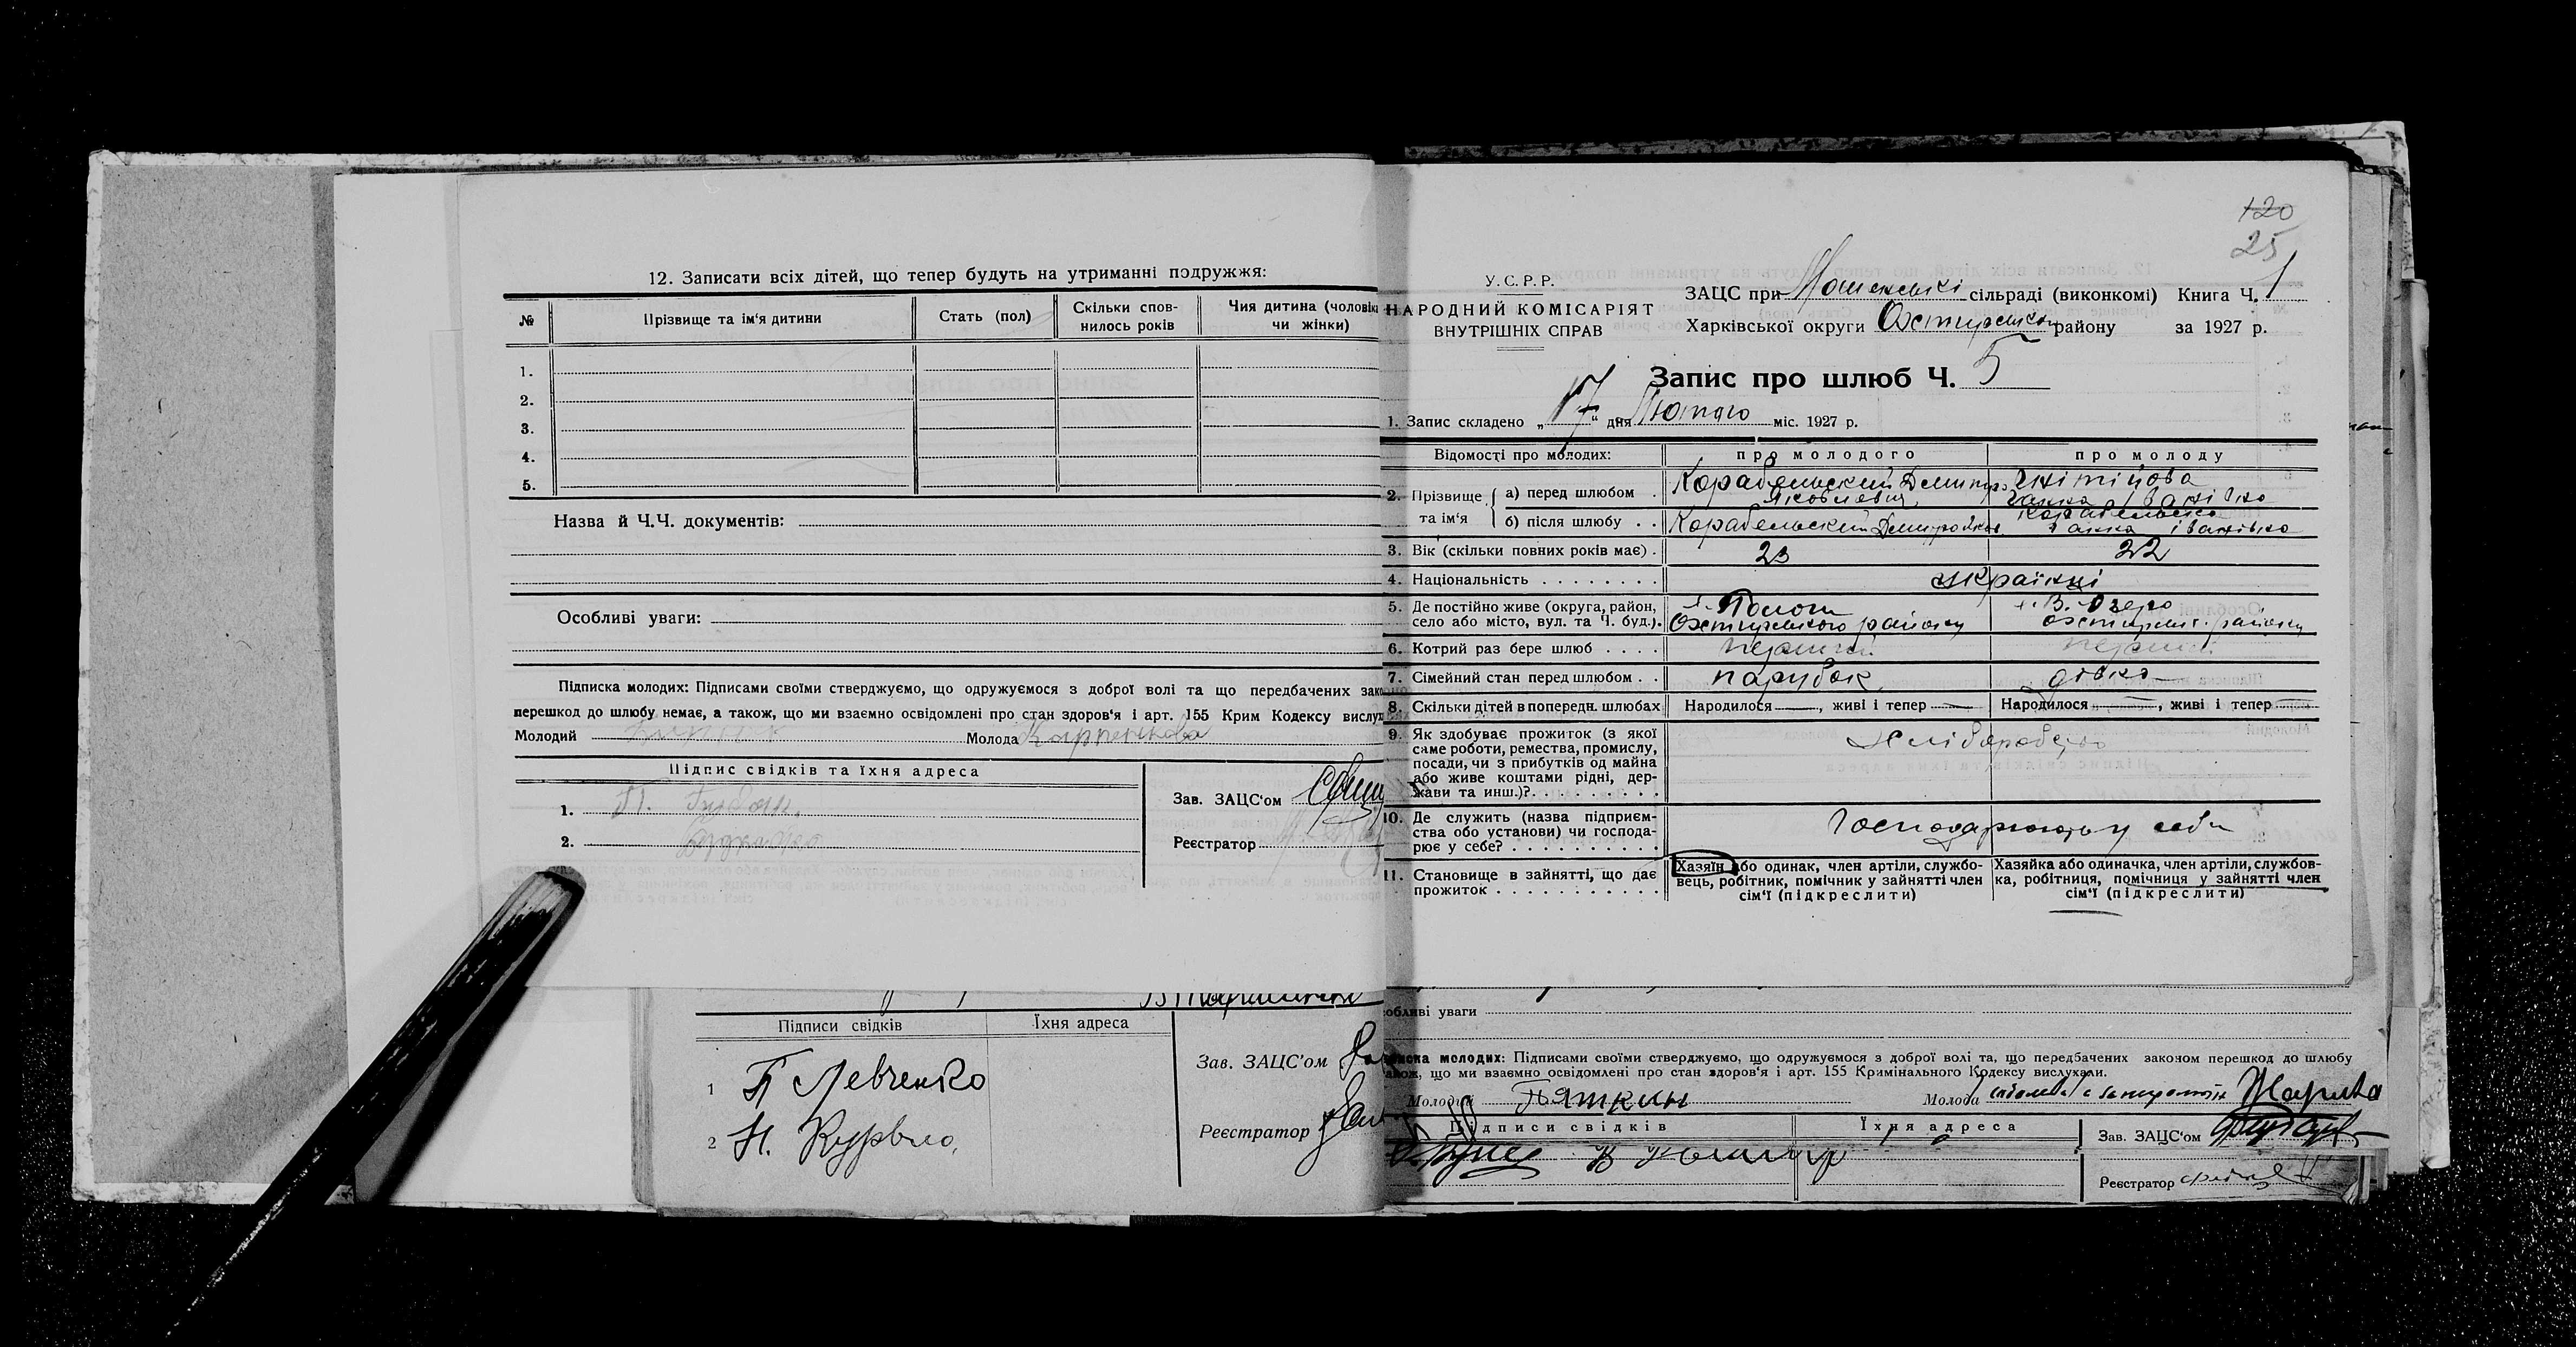 12. Записати всіх дітей, що тепер будуть на утриманні подружжя:
№ Прізвище та ім'я дитини Стать (пол) Скільки спов- Чия дитина (чоловік
нилось років чи жінки)
1.
2.
3.
4.
5.
Назва й Ч.Ч. документів:
Особливі уваги:
Підписка молодих: Підписами своїми стверджуємо, що одружуємося з доброї волі та що передбачених зак
перешкод до шлюбу немає, а також, що ми взаємно освідомлені про стан здоров'я і арт. 155 Крим Кодексу вислух
Молодий Молода
Підпис свідків та їхня адреса
1. П. Губан
2.
Зав. ЗАЦС'ом
Реєстратор
Підписи свідків Їхня адреса
1 П Левченко
2 Н. Курвло,
Зав. ЗАЦС'ом
Реєстратор
120
25
У.С.Р.Р.
НАРОДНИЙ КОМІСАРІЯТ
ВНУТРІШНІХ СПРАВ
ЗАЦС при сільраді (виконкомі) Книга Ч. 1
Харківської округи Охтирсько району за 1927 р.
Запис про шлюб Ч. 5
1. Запис складено „17“ дня Лютого міс. 1927 р.
Відомості про молодих: про молодого про молоду
2. Прізвище та ім'я а) перед шлюбом . Корабельский Дмитро
Яковлевич Ганна Іванівна
б) після шлюбу . . Корабельский Дмитро Яков. Корабельська
Ганна Іванівна
3. Вік (скільки повних років має) . 23 22
4. Національність . . . . . . . . українці
5. Де постійно живе (округа, район, х. х. В. Озеро
село або місто, вул. та Ч. буд.). Охтирського району Охтирськ. району
6. Котрий раз бере шлюб . . . . перший перший
7. Сімейний стан перед шлюбом . . парубок дівка
8. Скільки дітей в попередн. шлюбах Народилося —, живі і тепер — Народилося —, живі і тепер —
9. Як здобуває прожиток (з якої хліборобство
саме роботи, ремества, промислу,
посади, чи з прибутків од майна
або живе коштами рідні, дер-
жави та инш.)?. . . . . . . . .
10. Де служить (назва підприєм-
ства або установи) чи господа- Господарюють у себе
рює у себе? . . . . . . . . . .
11. Становище в зайнятті, що дає
прожиток . . . . . . . . . . .
Хазяїн або одинак, член артіли, службо-
вець, робітник, помічник у зайнятті член
сім'ї (підкреслити)
Хазяйка або одиначка, член артіли, службов-
ка, робітниця, помічниця у зайнятті член
сім'ї (підкреслити)
обливі уваги
иска молодих: Підписами своїми стверджуємо, що одружуємося з доброї волі та, що передбачених законом перешкод до шлюбу
акож, що ми взаємно освідомлені про стан здоров'я і арт. 155 Кримінального Кодексу вислухали.
Молодий Пяткин Молода
Підписи свідків Їхня адреса
Зав. ЗАЦС'ом
Реєстратор